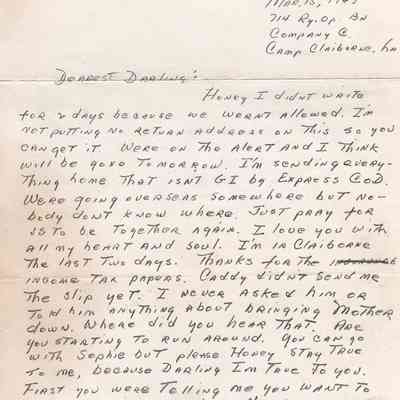 Mar. 15, 194
714 Ry. Op. Bn
Company C.
Camp Claiborne, La
Dearest Darling:
Honey I didnt write
for 2 days because we wernt allowed. I'm
not putting no return address on this so you
can get it. Were on the alert and I think
will be gone tomorrow. I'm sending every-
thing home that isnt GI by Express C.O.D.
Were going overseas somewhere but no-
body dont know where. Just pray for
us to be together again. I love you with
all my heart and soul. I'm in Claiborne
the last two days. Thanks for the
income tax papers. Caddy didnt send me
the slip yet. I never asked him or
told him anything about bringing Mother
down. Where did you hear that. Are
you starting to run around. You can go
with Sophie but please Honey stay true
to me, because Darling Im true to you.
First you were telling me you want to